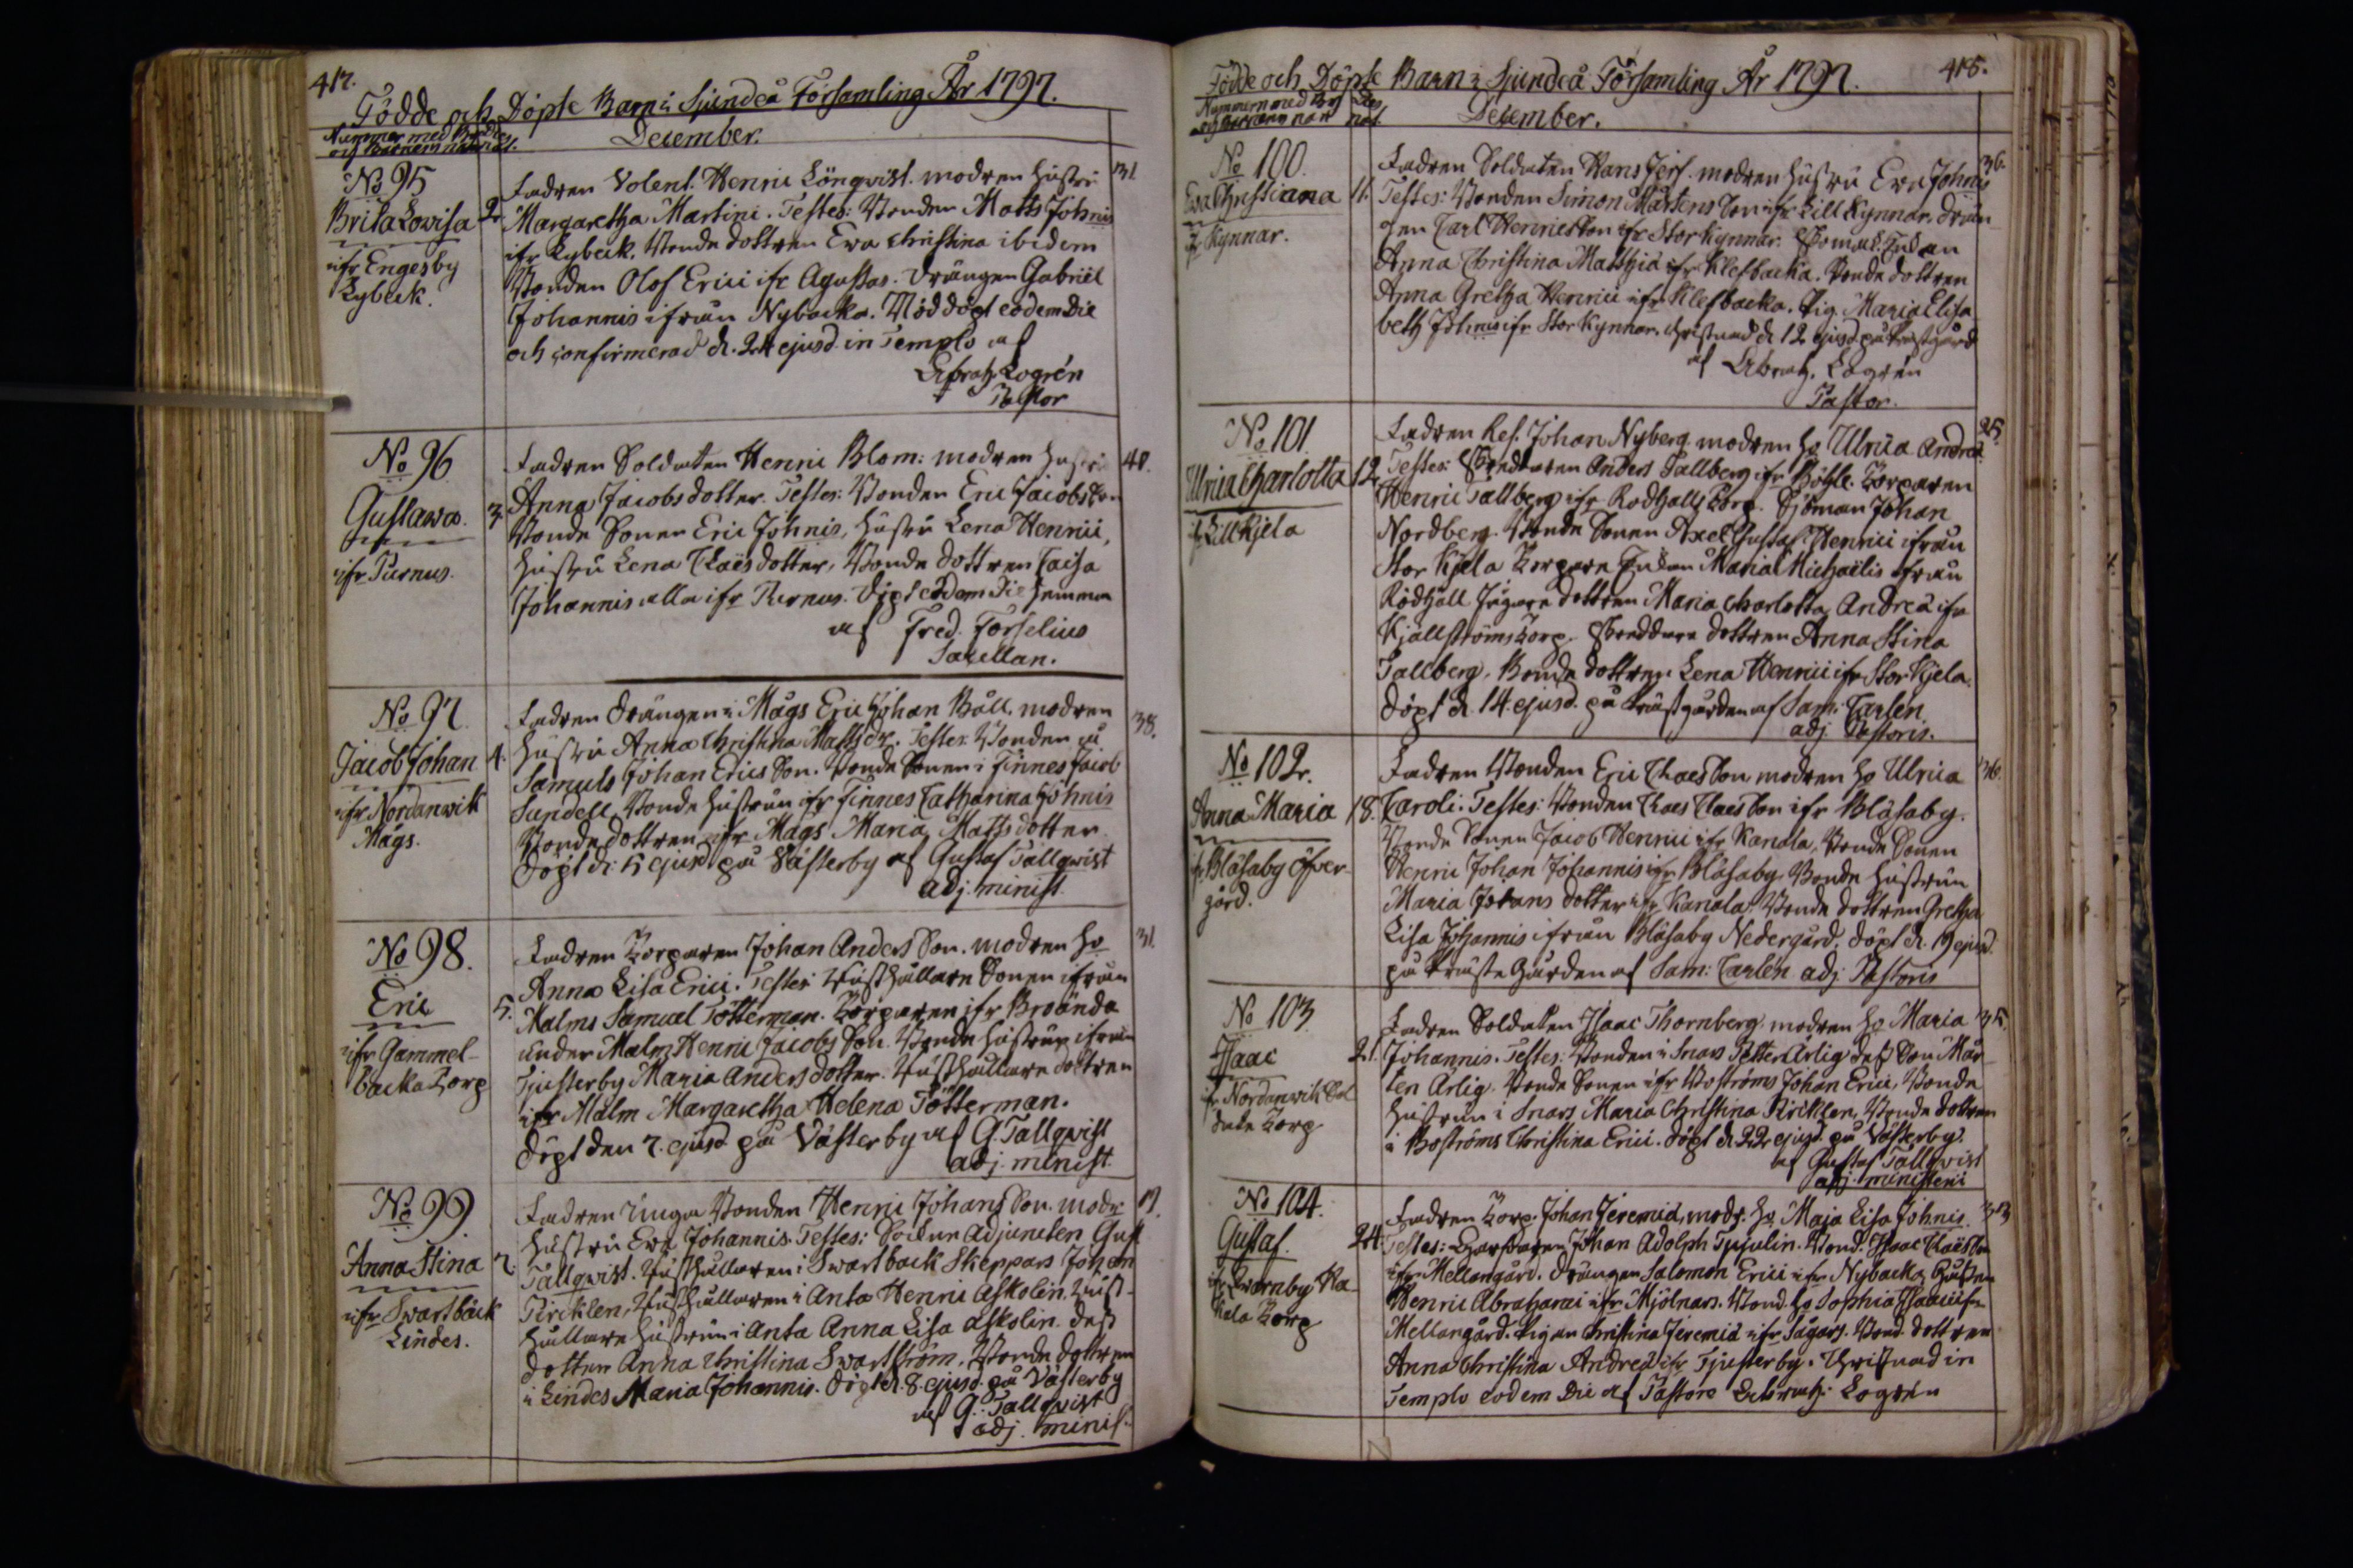 417.
Födde och Döpte Barn i Sjundeå Församling År 1797.
December.
No 95
Brita Lovisa 2.
ifr Engesby
Kybeck.
Fadren Volent. Henric Lönqvist. modren hustru 31
Margaretha Martini. Testes: Bonden Matts Johnis
ifr Kybeck, Bonde dottren Eva Christina ibidem
Bonden Olof Erici ifr Agustas. drängen Gabriel
Johannis ifrån Nybacka. Nöddöpt eodem Die
och confirmerad d. 24 ejusd in Templo af
Abrah. Logrén
Pastor
No 96
Gustawa. 3
ifr Purnus.
Fadren Soldaten Henric Blom: modren hustru 40.
Anna Jacobsdotter. Testes: Bonden Eric Jacobsson
Bonde Sonen Eric Johnis, hustru Lena Henrici,
hustru Lena Claësdotter, Bonde dottren Caisa
Johannis alla ifr Purnus. Döpt eodem Die hemma
af Fred. Forselius
Sacellan.
No 97
Jacob Johan 4.
ifr Nordanwik
Mågs.
Fadren drängen i Mågs Eric Johan Båll. modren 38.
hustru Anna Christina Mattsdr. Testes: Bonden i
Samuls Johan Erics Son. Bonde Sonen i Finnes Jacob
Sundell, Bonde hustrun ifr Finnes Catharina Johnis
Bonde dottren ifr Mågs Maria Matts dotter
döpt d. 5 ejusd på Västerby af Gustaf Tallqwist
adj. minist.
No 98.
Eric 5.
ifr Gammel-
backa Torp
Fadren Torparen Johan Anders Son. modren ho 31.
Anna Lisa Erici. Testes Rusthållare Sonen ifrån
Malms Samuel Tötterman. Torparen ifr Broända
under Malm Henric Jacobs Son. Bonde hustrun ifrån
Tjusterby Maria Anders dotter. Rusthållare dottren
ifr Malm Margaretha Helena Tötterman.
Döpt den 7. ejusd på Västerby af G. Tallqwist
adj. minist.
No 99.
Anna Stina 7.
ifr Swartbäck
Lindes.
Fadren unga Bonden Henric Johans Son. modr
hustru Eva Johannis. Testes: Sockne Adjuncten Gust
Tallqwist. Rusthållaren i Swartback Skeppars Johan
Pircklen, Rusthållaren i Anta Henric Askolin. Rust-
hållare hustrun i Anta Anna Lisa Askolin dess
dotter Anna Christina Swartström. Bonde dottren
i Lindes Maria Johannis. döpt d. 8. ejusd. på Västerby
af G. Tallqvist
adj. minis.
418.
Födde och Döpte Barn i Sjundeå Församling År 1797.
December.
No 100.
Eva Christiana 11.
Kynnar.
Fadren Soldaten Hans Jerf. modren hustru Eva Johnis 36.
Testes: Bonden Simon Mårtens Son ifr Lill Kynnar. drän
gen Carl Henricsson ifr Stor Kynnar.
Anna Christina Matthiæ ifr Klefbacka. Bonde dottren
Anna Gretha Henrici ifr Klefbacka. Pig. Maria Elisa
beth Johnis ifr Stor Kynnar. Christnad d 12 ejusd på Prestgård
af Abrah. Logrén
Pastor.
No 101
Ulrica Charlotta 12
if. Lill Kjela
Fadren Ref. Johan Nyberg. modren ho Ulrica Andreæ 25.
Testes: Anders Tallberg ifr Böhle. Torparen
Henric Tallberg ifr Rodhälls Torp. Sjöman Johan
Nordberg. Bonde Sonen Axel Gustaf Henrici ifrån
Stor Kjela Torpare Enkan Maria Michaëlis ifrån
Rödhäll Jägare dottren Maria Charlotta Andreæ ifr
Kjällströms Torp. dottren Anna Stina
Tallberg, Bonde dottren Lena Henrici ifr Stor Kjela.
döpt d. 14 ejusd. på Prästgården af Sam. Carlen
adj. Pastoris.
No 102.
Anna Maria 18.
fr. Bläsaby Öfver-
gård.
Fadren Bonden Eric Claes Son modren ho Ulrica 36.
Caroli. Testes: Bonden Claes Claes Son ifr Bläsaby.
Bonde Sonen Jacob Henrici ifr Kanala, Bonde Sonen
Henric Johan Johannis ifr Bläsaby Bonde hustrun
Maria Johans dotter ifr Kanala, Bonde dottren Gretha
Lisa Johannis ifrån Bläsaby Nedergård, döpt d. 19 ejusd.
på Präste Gården af Sam: Carlén adj. Pastoris
No 103
Isaac 21.
fr Nordanwik Sol
date Torp
Fadren Soldaten Isaac Thornberg. modren ho Maria 35.
Johannis. Testes: Bonden i Snars Petter Ärlig dess Son Mår
ten Ärlig. Bonde Sonen ifr Boströms Johan Erici, Bonde
hustrun i Snars Maria Christina Pircklen, Bonde dottren
i Boströms Christina Erici. döpt d 22 ejusd. på Västerby.
af Gustaf Tallqvist
adj. ministerii
No 104.
Gustaf. 24
ifr Qvarnby
Torp
Fadren Torp. Johan Jeremiæ, modr. ho Maja Lisa Johnis. 33
Testes: Johan Adolph Tujulin. Bond. Isaac Claës Son
ifr Mellangård. drängen Salomon Erici ifr Nybacka
Henric Abrahami ifr Mjölnars. Bond. ho Sophia Isaaci ifr
Mellangård. Pigan Christina Jeremiæ ifr Sågars. Bond. dottren
Anna Christina Andreæ ifr Tjusterby. Christnad in
Templo eodem Die af Pastore Abrah: Logrén